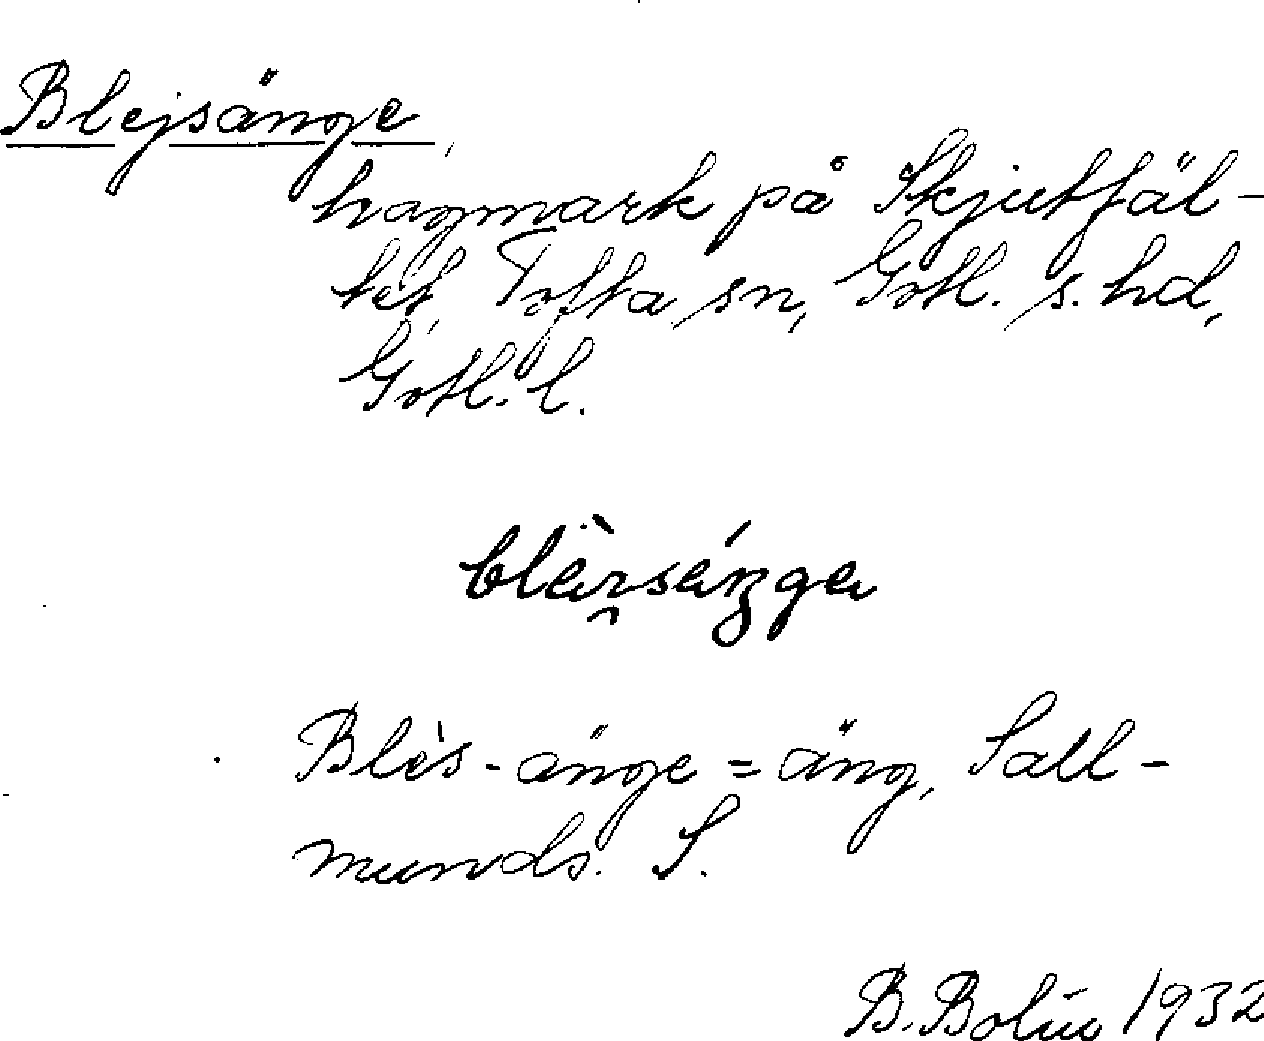 Blejsänge,
hagmark på Skjutfäl-
tet, Tofta sn, Gotl. s. hd,
Gotl. l.
Blès-änge = äng, Sall-
munds. S.
B. Bolin 1932